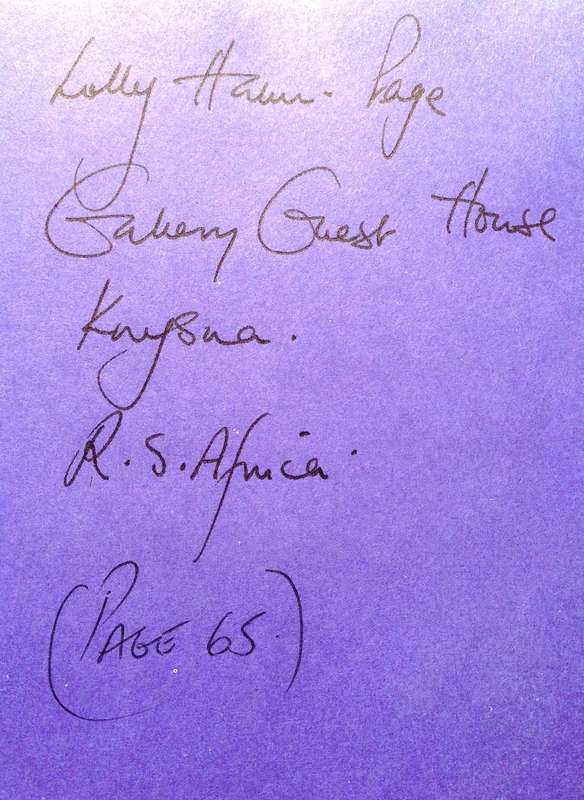 Lolly Hahn-Page
Gallery Guest House
Knysna.
R.S.Africa.
(PAGE 65.)